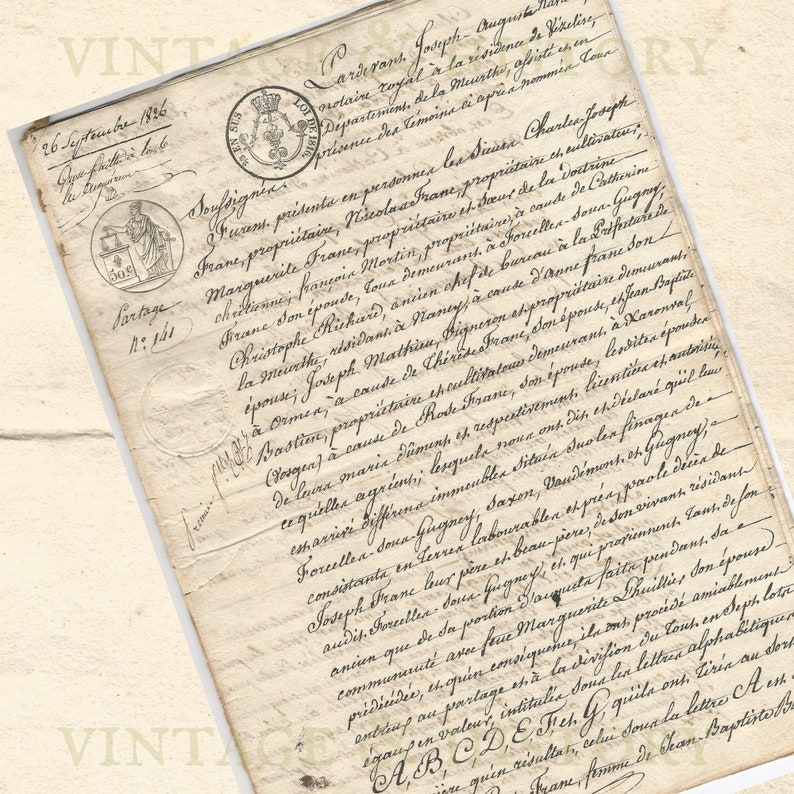 VINTAGE & HISTORY
Pardevant Joseph-Auguste
notaire royal à la résidence de Vézelise,
Département de la Meurthe, assisté et en
présence des témoins ci après nommés tous
soussignés.
26 Septembre 1826
LOI DE 1816.
50 c.
Partage
N.° 141
Furent présents en personnes les Sieurs Charles-Joseph
Franc, propriétaire, Nicolas Franc, propriétaire et cultivateur;
Marguerite Franc, propriétaire et Sœur de la doctrine
chrétienne; françois Mortin, propriétaire, à cause de Catherine
Franc son épouse, tous demeurant à Forcelles-sous-Gugney;
Christophe Richard, ancien chef de bureau à la Préfecture de
la Meurthe, résidant à Nancy, à cause d'Anne franc son
épouse; Joseph Mathieu, Vigneron et propriétaire demeurant
à Ormes, à cause de Thérèse Franc, son épouse, et Jean-Baptiste
Bastien, propriétaire et cultivateur demeurant à Xaronval
(Vosges) à cause de Rose Franc, son épouse, lesdites épouses
de leurs maris dûment et respectivement licentiées et autorisées
ce qu'elles agréent; lesquels nous ont dit et déclaré qu'il leur
est arrivé différens immeubles situés sur les finages de
Forcelles-sous-Gugney, Saxon, Vaudémont et Gugney,
consistants en terres labourables et prés, par le décès de
Joseph Franc leur père et beau-père, de son vivant résidant
audit Forcelles-sous-Gugney, et qui proviennent tant de son
ancien que de sa portion d'acquets faits pendant sa
communauté avec feue Marguerite Lhuillier son épouse
prédécédée, et qu'en conséquence, ils ont procédé amiablement
entr'eux au partage et à la division du tout en Sept lots
égaux en valeur, intitulés sous les lettres alphabétiques
A, B, C, D, E, F et G, qu'ils ont tirés au sort
qu'en résultat, celui sous la lettre A est
Franc, femme de Jean-Baptiste
VINTAGE & HISTORY